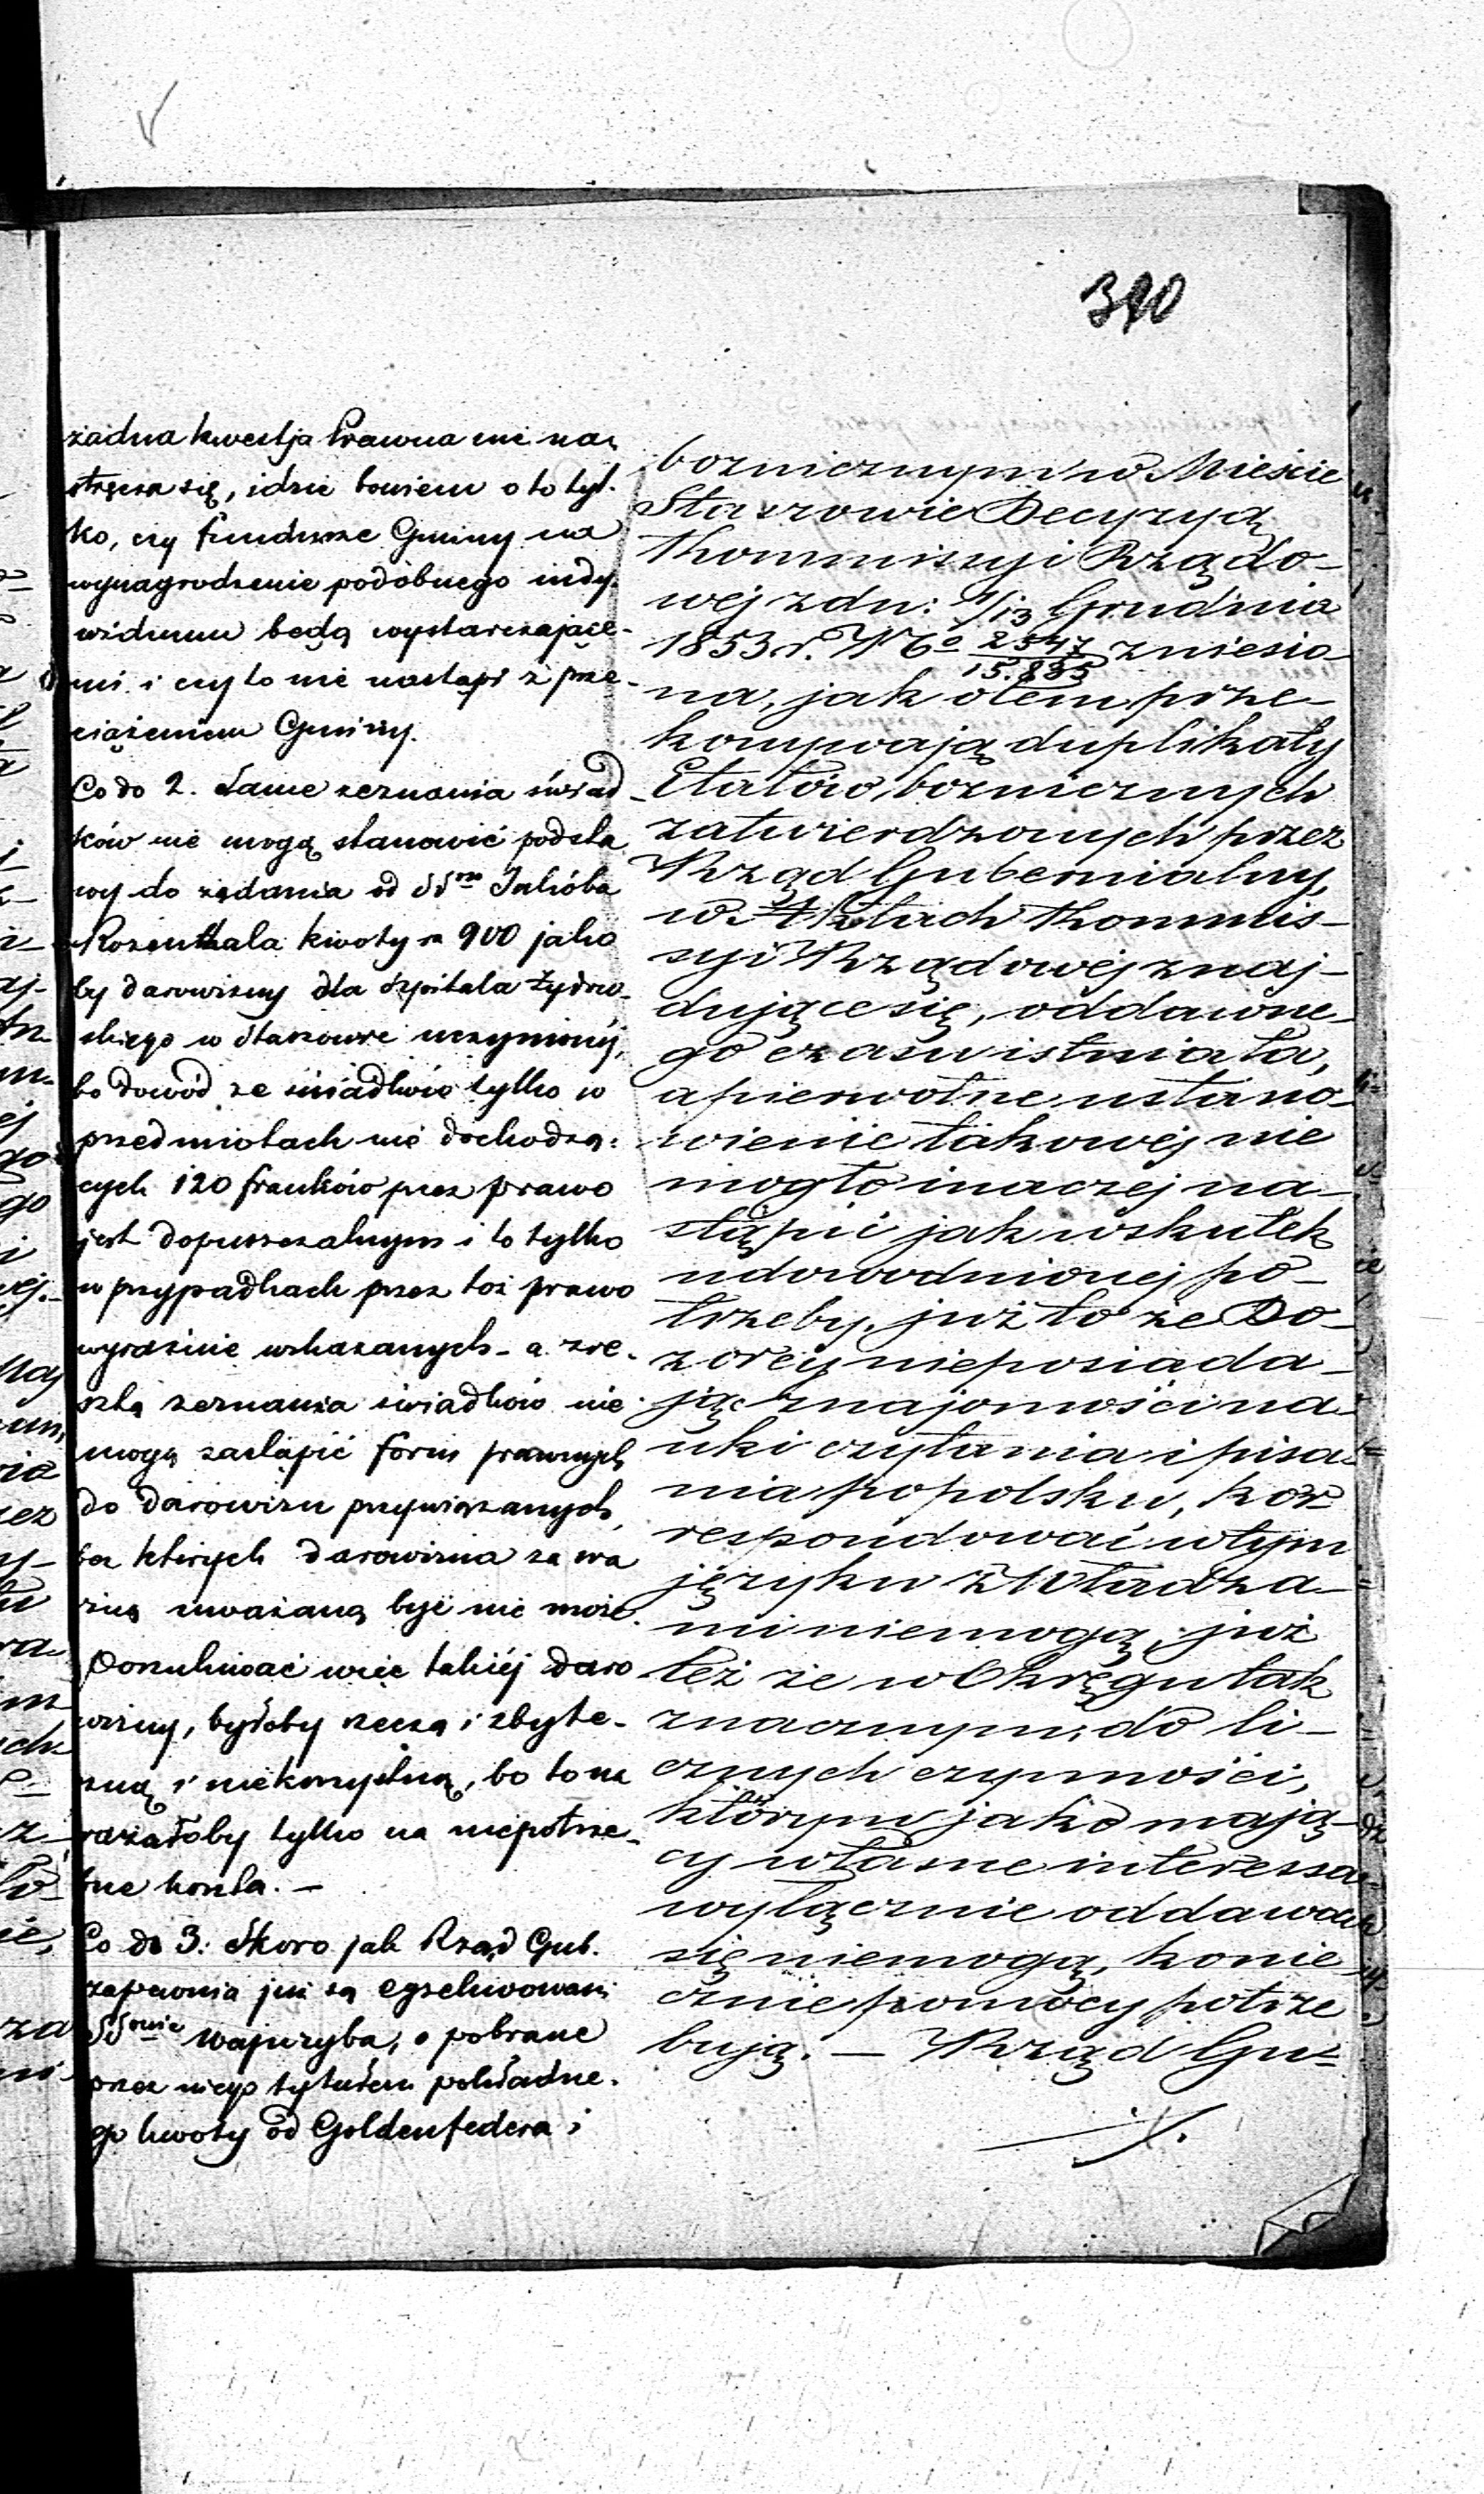 390
żadna kwestja Prawna nie na-
stręcza się, idzie bowiem o to tyl-
ko, czy fundusze Gminy na
wynagrodzenie podobnego indy-
widuum będą wystarczające-
mi i czy to nie nastąpi z prze-
ciążeniem Gminy.
Co do 2. Same zeznania świad-
ków nie mogą stanowić podsta
wy do żądania od SSrów Jakóba
Rozenthala kwoty rs 900 jako
by darowizny dla Szpitala żydow-
skiego w Staszowie uczynionej,
bo dowód ze świadków tylko w
przedmiotach nie dochodzą-
cych 120 franków przez prawo
jest dopuszczalnym i to tylko
w przypadkach przez toż prawo
wyraźnie wskazanych - a zre-
sztą zeznania świadków nie
mogą zastąpić form prawnych
do darowizn przywiązanych,
bez których darowizna za wa
żną uważaną być nie może.
Poszukiwać więc takiéj daro
wizny, byłoby rzeczą i zbyte-
czną i niekorzystną, bo to na
rażałoby tylko na niepotrze-
bne koszta. —
Co do 3: Skoro jak Rząd Gub.
zapewnia już są egzekwowani
SSowie Wajnryba, o pobrane
przez niego tytułem pokładne-
go kwoty od Goldenfedera i
bożnicznym w Mieście
Staszowie Decyzyą
Kommissyi Rządo-
wej z dn: 1/13 Grudnia
1853 r. No 2547/15.835 zniesio-
na, jak o tem prze-
konywają duplikaty
Etatów bożnicznych
zatwierdzonych przez
Rząd Gubernialny,
w Aktach Kommis-
syi Rządowej znaj-
dujące się, oddawne-
go czasu istniała,
a pierwotne ustano-
wienie takowej nie
mogło inaczej na-
stąpić jak wskutek
udowodnionej po-
trzeby, już to że Do-
zorcy nieposiada-
jąc znajomości na-
uki czytania i pisa-
nia po polsku, kor-
respondować w tym
języku z Władza-
mi niemogą, już
też że w Okręgu tak
znacznym, do li-
cznych czynności,
którym jako mają-
cy własne interessa
wyłącznie oddawać
się niemogą, konie-
cznie pomocy potrze
bują. — Rząd Gu-